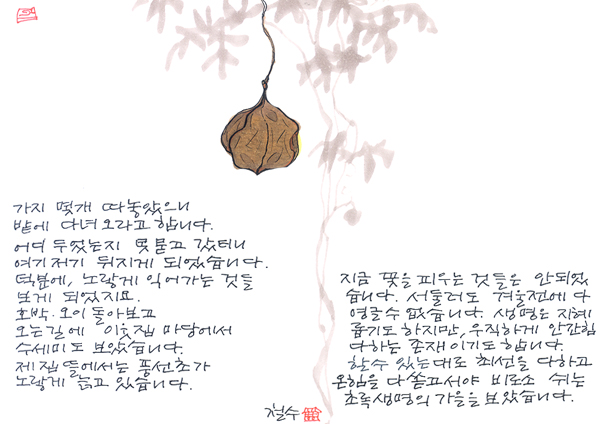 가지 몇개 따놓았으니
밭에 다녀오라고 합니다.
어디 두었는지 못묻고 갔더니
여기저기 뒤지게 되었습니다.
덕분에, 노랗게 익어가는 것들
보게 되었지요.
호박·오이 돌아보고
오는길에 이웃집 마당에서
수세미도 보았습니다.
제집뜰에서는 풍선초가
노랗게 늙고 있습니다.
지금 꽃을 피우는 것들은 안되었
습니다. 서둘러도 겨울전에 다
영글수 없습니다. 생명은 지혜
롭기도 하지만, 우직하게 안간힘
다하는 존재이기도 합니다.
할수 있는대로 최선을 다하고
온힘을 다쏟고서야 비로소 쉬는
초록생명의 가을을 보았습니다.
철수